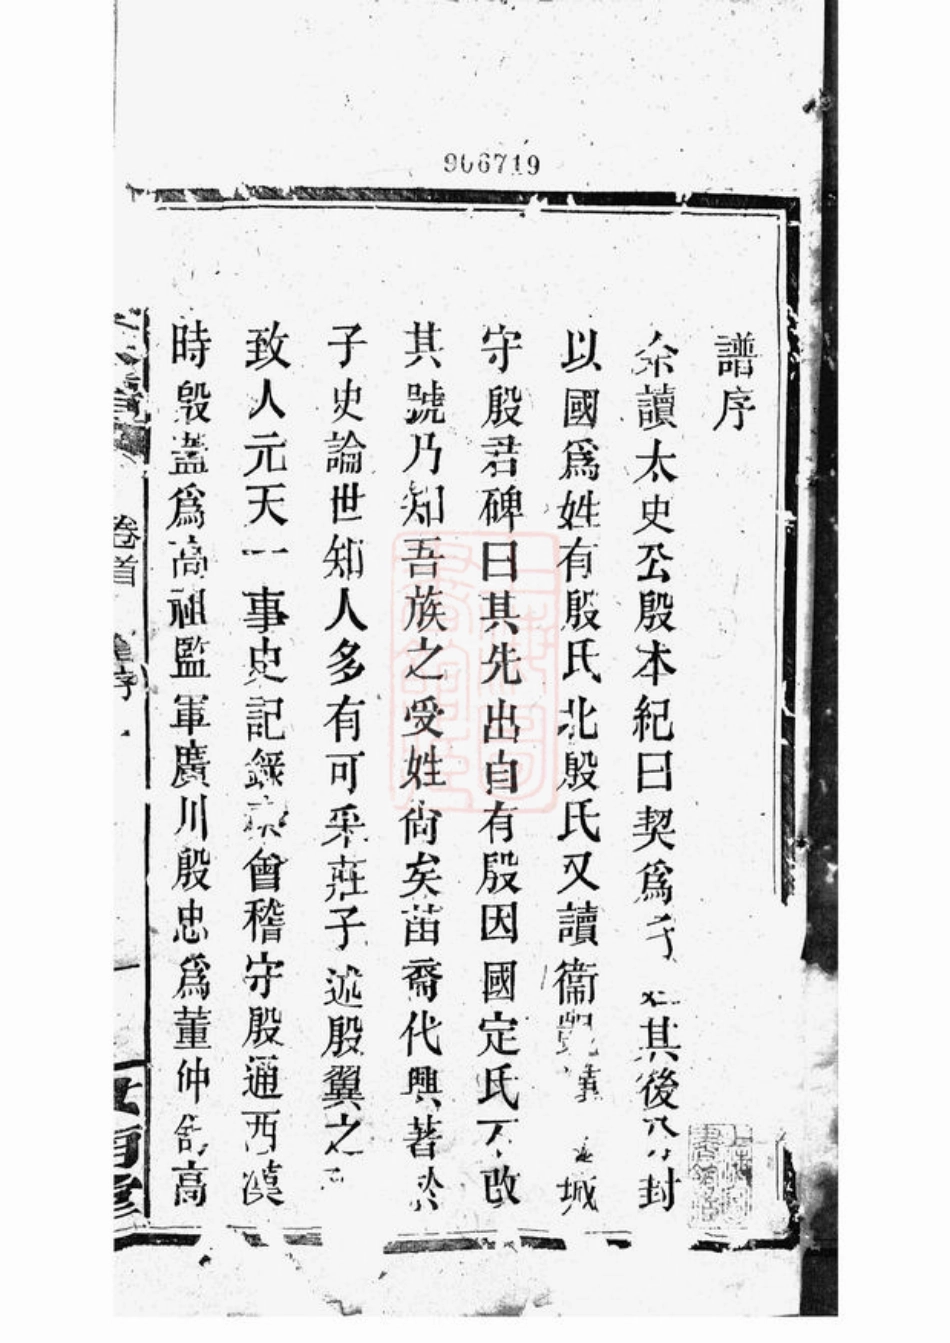 906719
譜序
余讀太史公殷本紀曰契爲子姓其後分封
以國爲姓有殷氏北殷氏又讀衞凱漢城
守殷君碑曰其先出自有殷因國定氏不改
其號乃知吾族之受姓尙矣苗裔代興著於
子史論世知人多有可采莊子述殷翼之
致人元天一事史記錄會稽守殷通西漢
時殷蓋爲高祖監軍廣川殷忠爲董仲舒高
卷首
序